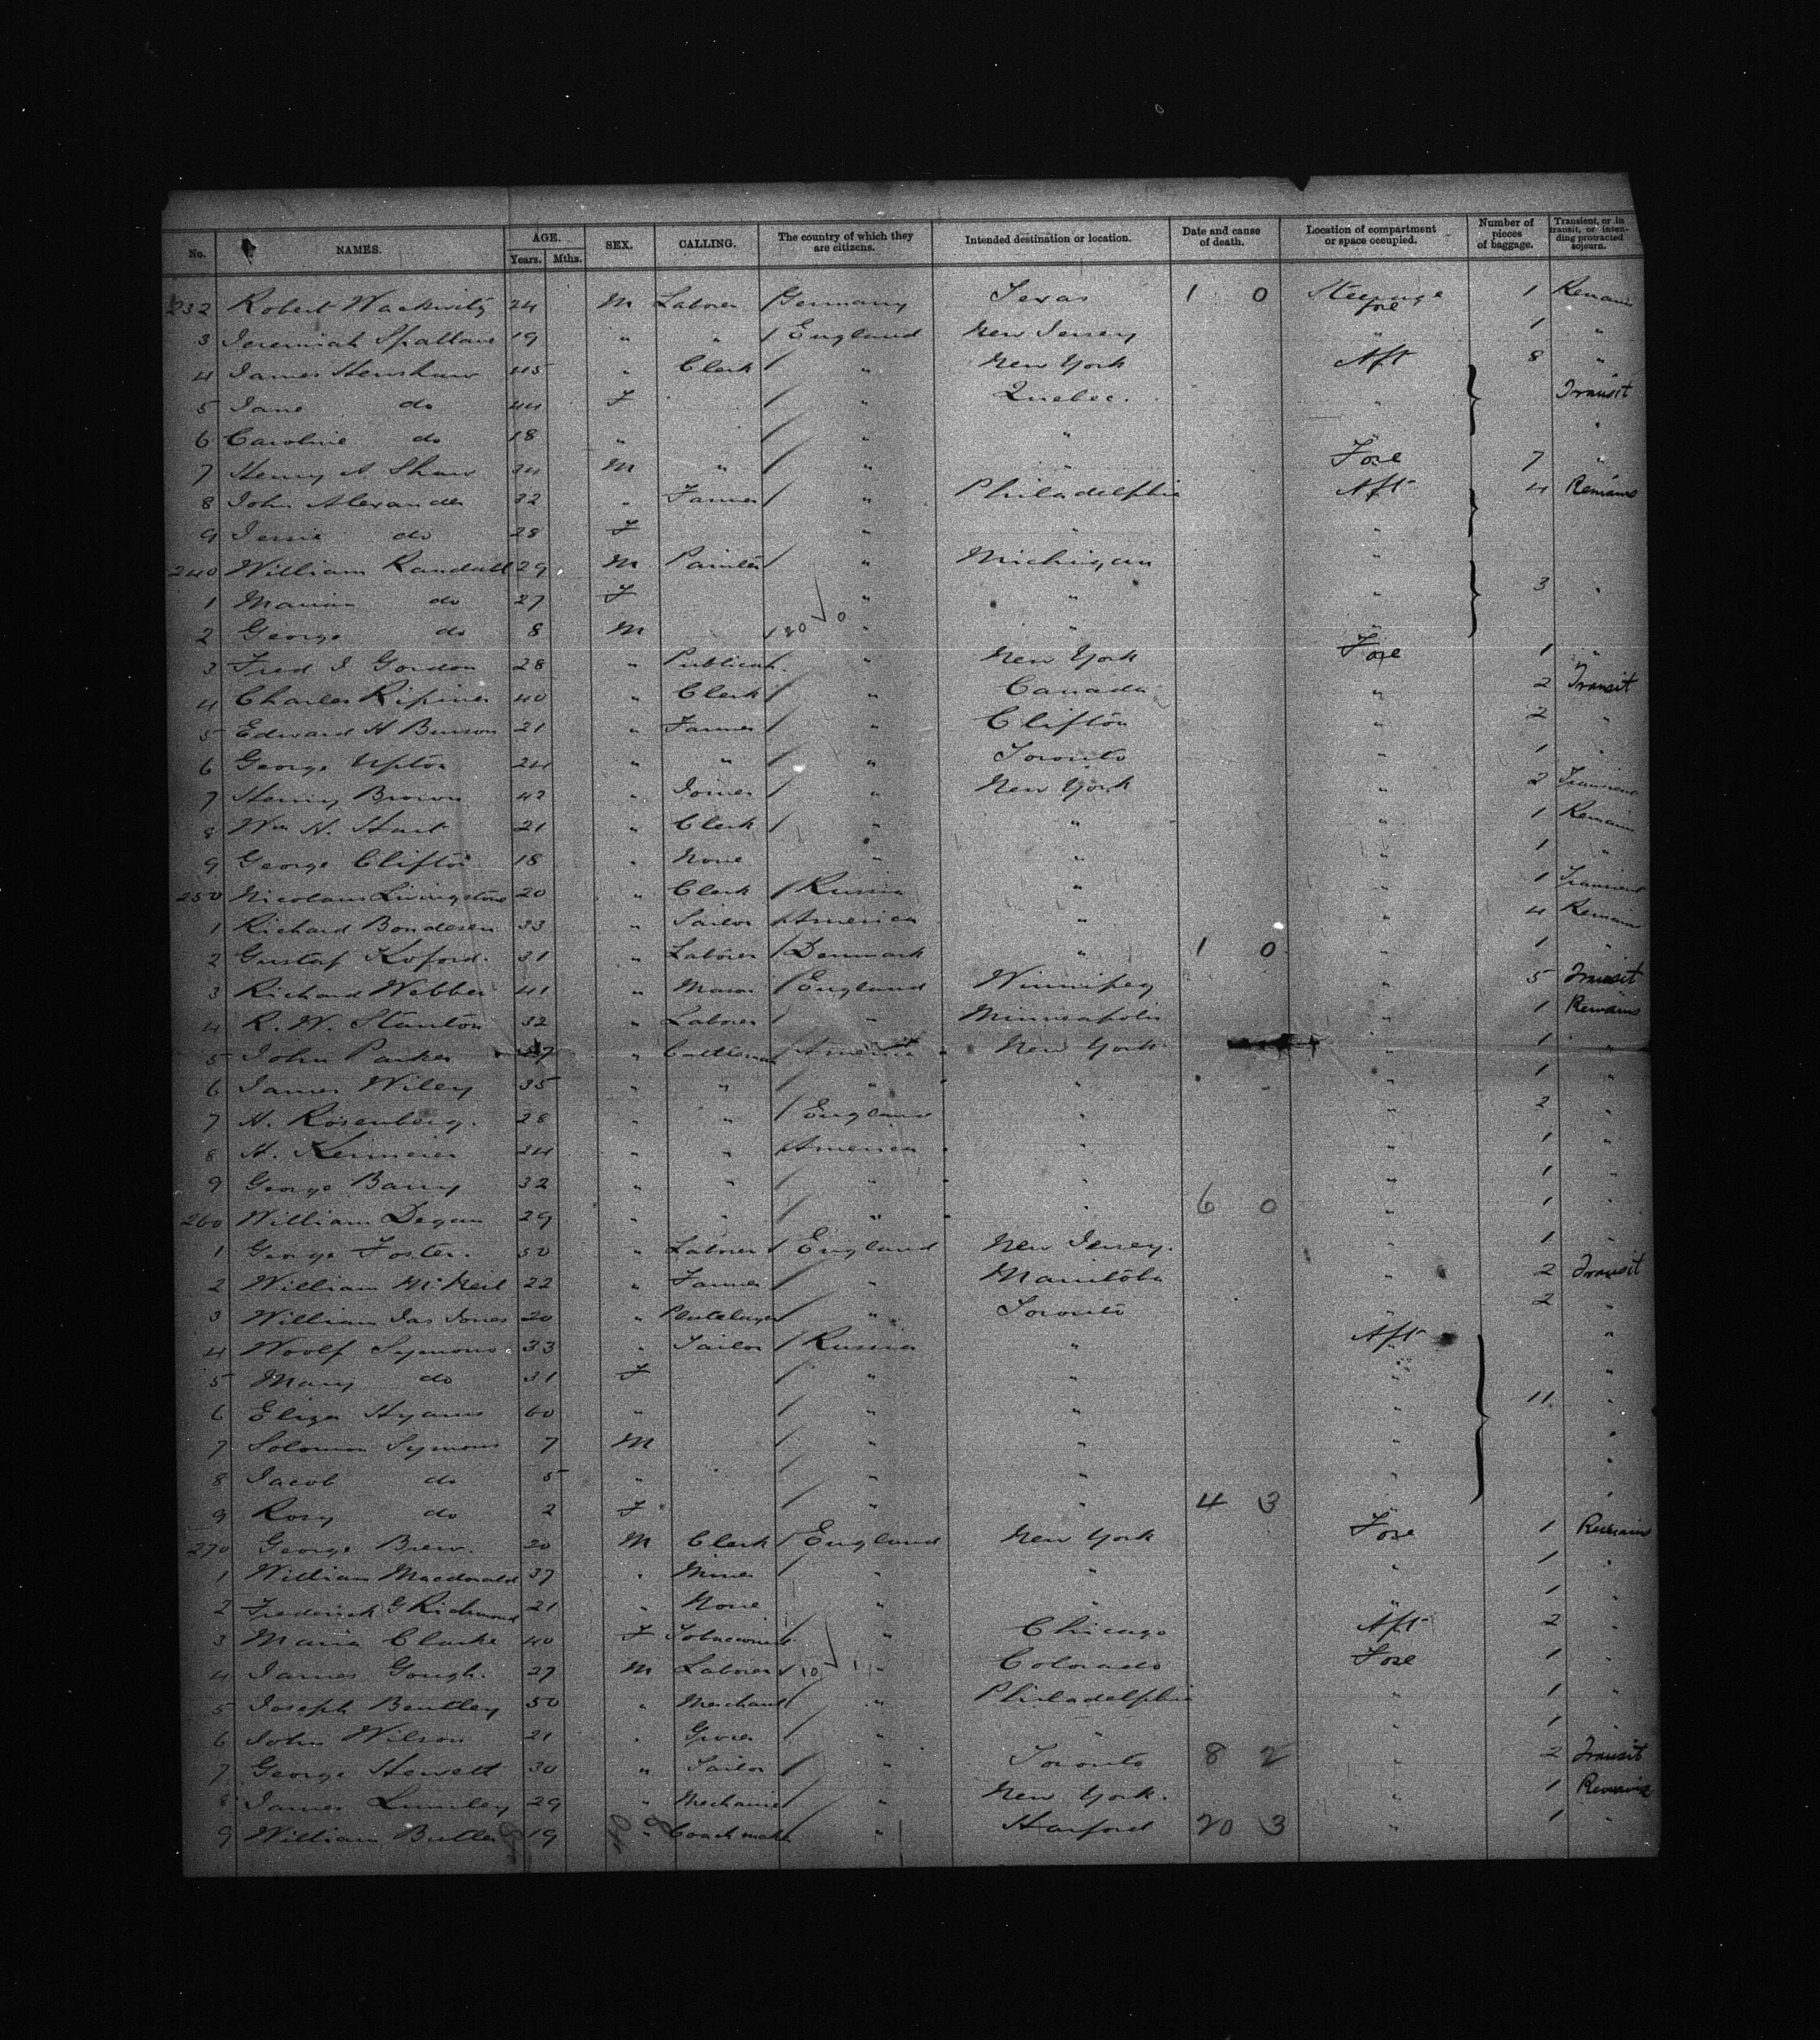 No. NAMES. AGE. Years. Mths. SEX. CALLING. The country of which they are citizens. Intended destination or location. Date and cause of death. Location of compartment or space occupied. Number of pieces of baggage. Transient, or in transit, or intending protracted sojourn.
232 Robert Wackwitz 24 M Laborer Germany Texas 1 0 Steerage Fore 1 Remains
3 Jeremiah Spallane 19 " " England New Jersey " 1 "
4 James Henshaw 45 " Clerk " New York Aft 8 "
5 Jane do 44 F " Quebec. " Transit
6 Caroline do 18 " " " " "
7 Henry A Shaw 24 M " " " Fore 7 "
8 John Alexander 32 " Farmer " Philadelphia Aft 4 Remains
9 Jessie do 28 F " " "
240 William Randall 29 M Painter " Michigan "
1 Marian do 27 F " " " 3 "
2 George do 8 M 20 0 " " "
3 Fred J Gordon 28 " Publican " New York Fore 1 "
4 Charles 40 " Clerk " Canada " 2 Transit
5 Edward H 21 " Farmer " Clifton " 2 "
6 George Upton 24 " " " Toronto " 1 "
7 Henry Brown 42 " Joiner " New York " 2 Transient
8 Wm H. 21 " Clerk " " " 1 Remain
9 George Clifton 18 " None " " " 1 "
250 Nicolaus Livingstone 20 " Clerk Russia " " 1 Transient
1 Richard Bondesen 33 " Sailor America " " 4 Remain
2 Gustaf Koford. 31 " Laborer Denmark " 1 0 " 1 "
3 Richard Webber 41 " Mason England Winnipeg " 5 Transit
4 R. W. Stanton 32 " Laborer " Minneapolis " 1 Remains
5 John Parker " Cattleman America New York " 1 "
6 James Wiley 35 " " " " " 1 "
7 H. Rosenberg. 28 " " England " " 2 "
8 H. 34 " " America " " 1 "
9 George Barry 32 " " " " " 1 "
260 William Degan 29 " " " " 6 0 " 1 "
1 George Foster. 50 " Laborer England New Jersey. " 1 "
2 William McNeil 22 " Farmer " Manitoba " 2 Transit
3 William Jas Jones 20 " Platelayer " Toronto " 2 "
4 Woolf Symons 33 " Tailor Russia " Aft "
5 Mary do 31 F " " " "
6 Eliza Hyams 60 " " " " 11 "
7 Solomon Symons 7 M " " " "
8 Jacob do 5 " " " " "
9 Rosy do 2 F " " 4 3 " "
270 George Brew. 20 M Clerk England New York Fore 1 Remains
1 William Macdonald 37 " Miner " " " 1 "
2 Frederick G Richmond 21 " None " " " 1 "
3 Maria Clarke 40 F Tobacconist " Chicago Aft 2 "
4 James Gough. 27 M Laborer 10 1 " Colorado Fore 1 "
5 Joseph Bentley 50 " Merchant " Philadelphia " 1 "
6 John Wilson 21 " Grocer " " " 1 "
7 George Hewett 30 " Tailor " Toronto 8 2 " 2 Transit
8 James Lumley 29 " Mechanic " New York. " 1 Remains
9 William Butler 19 " Coachmaker " Harford 20 3 " 1 "